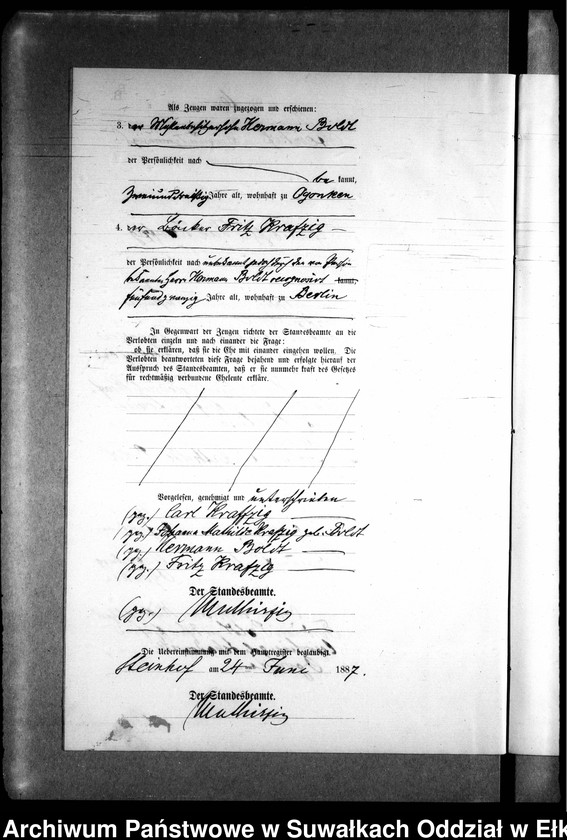 Als Zeugen waren zugezogen und erschienen:
3. der Hermann Boldt
der Persönlichkeit nach
be kannt,
zweiunddreißig Jahre alt, wohnhaft zu Ogonken
4. der Bäcker Fritz Krafzig
der Persönlichkeit nach
Herr Hermann Boldt recognoscirt kannt,
fünfundzwanzig Jahre alt, wohnhaft zu Berlin
In Gegenwart der Zeugen richtete der Standesbeamte an die
Verlobten einzeln und nach einander die Frage:
ob sie erklären, daß sie die Ehe mit einander eingehen wollen. Die
Verlobten beantworteten diese Frage bejahend und erfolgte hierauf der
Ausspruch des Standesbeamten, daß er sie nunmehr kraft des Gesetzes
für rechtmäßig verbundene Eheleute erkläre.
Vorgelesen, genehmigt und unterschrieben
(gez.) Carl Krafzig
(gez.) Johanna Mathilde Krafzig geb. Boldt
(gez.) Hermann Boldt
(gez.) Fritz Krafzig
Der Standesbeamte.
(gez.)
Die Uebereinstimmung mit dem Hauptregister beglaubigt.
Steinhof am 24 Juni 1887.
Der Standesbeamte.
Archiwum Państwowe w Suwałkach Oddział w Ełk